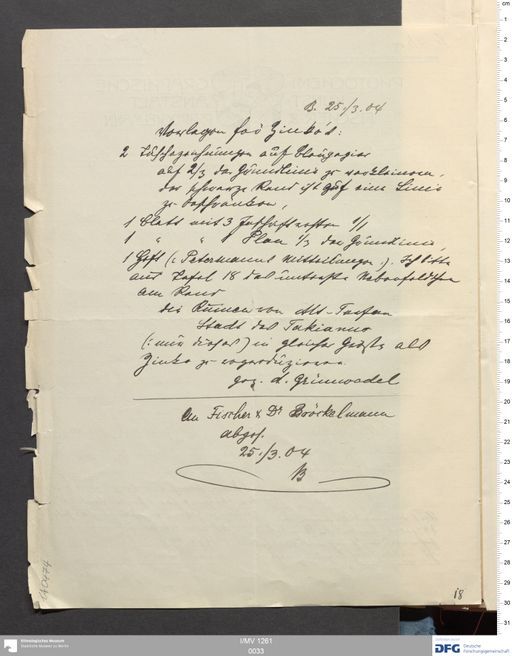 B. 25./3.04
Vorlagen für Zinkos:
2 Tuschzeichnungen auf Pauspapier
auf 2/3 der Grundlinie zu verkleinern,
der schwarze Rand ist auf eine Linie
zu beschränken,
1 Blatt mit 3 1/1
1 " " 1 Plan 1/3 der Grundlinie,
1 Heft (: Petermanns Mitteilungen :). Ich bitte
auf Tafel 18 das unterste Nebenkärtchen
am Rand
die Ruinen von Alt-Turfan
Stadt des Takianus
(: nur dieses) in gleicher Größe als
Zinko zu reproduzieren
gez. A. Grünwedel
An Fischer & Dr Bröckelmann
abges.
25./3.04
B
18
I/MV 1261
0033
Ethnologisches Museum
Staatliche Museen zu Berlin
DFG
Deutsche
Forschungsgemeinschaft